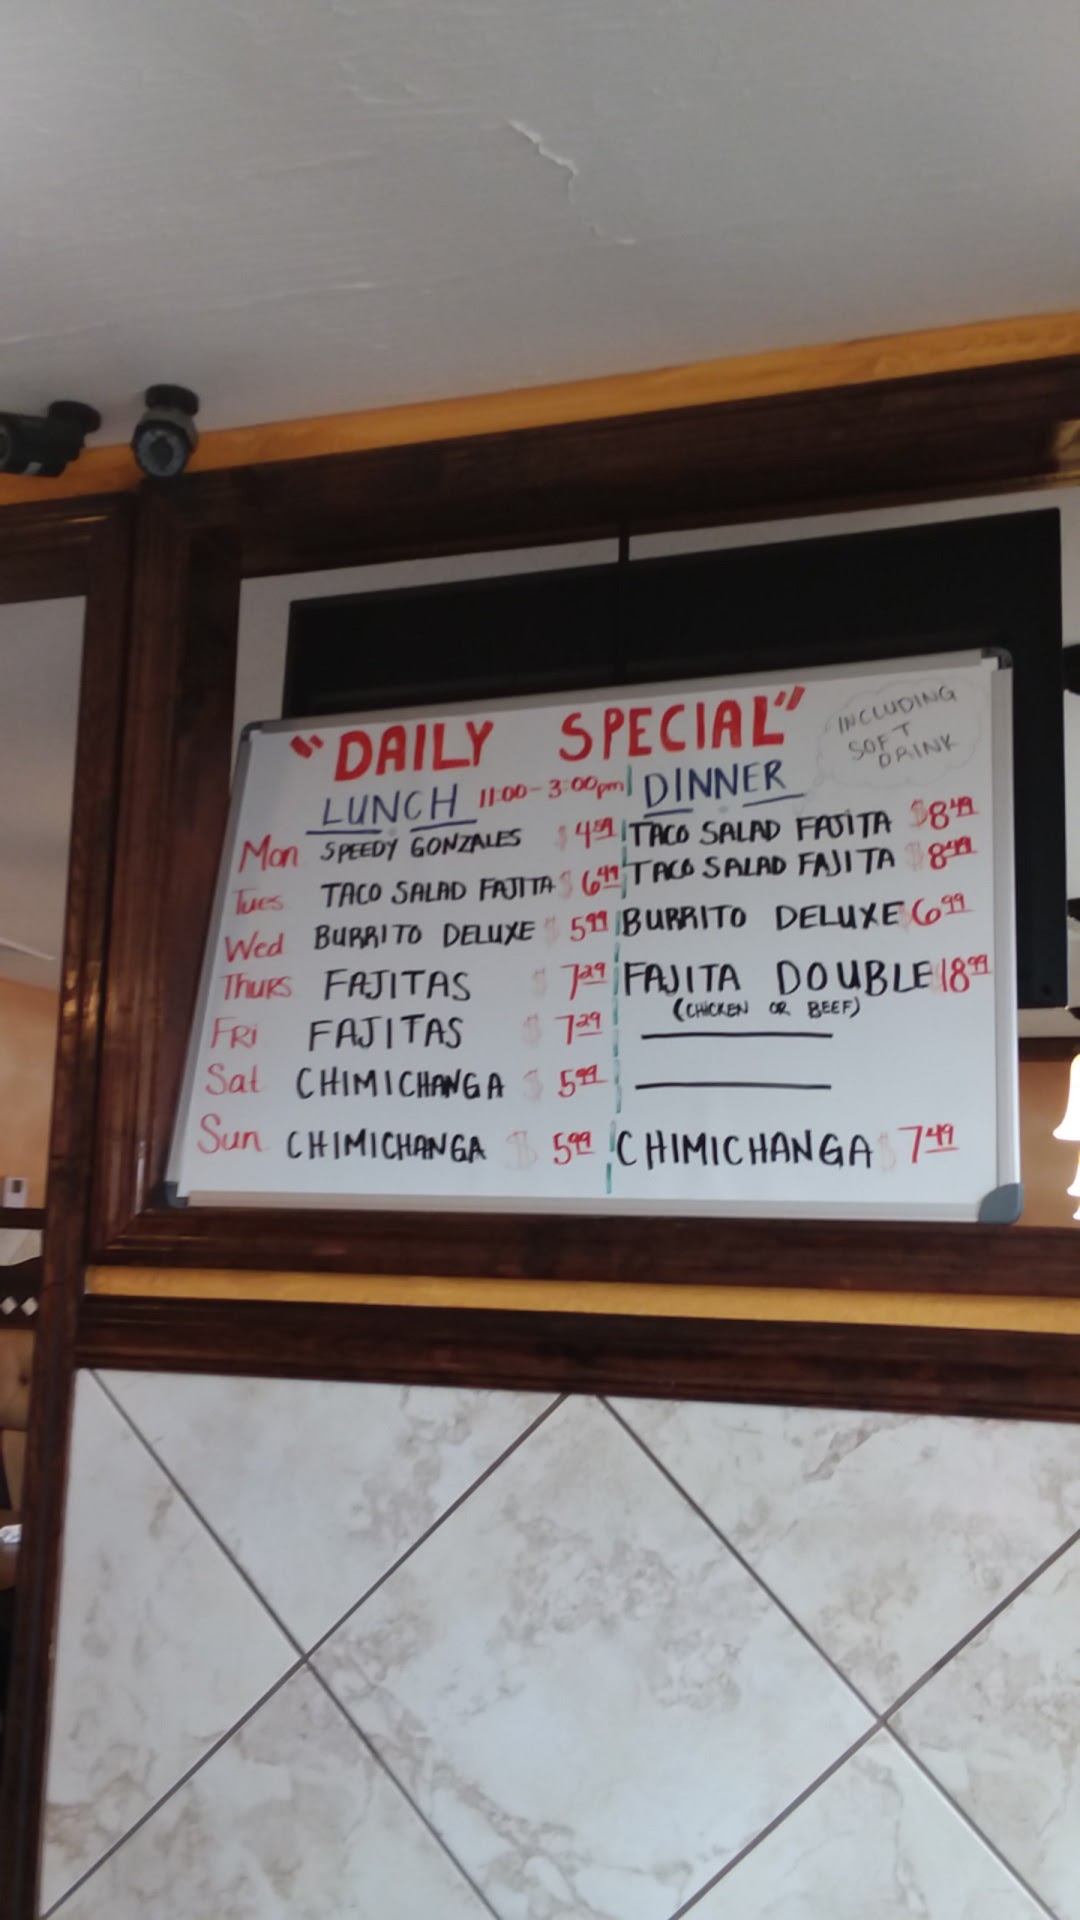 "DAILY SPECIAL"
INCLUDING
SOFT
DRINK
LUNCH 11:00-3:00pm DINNER
Mon SPEEDY GONZALES $4.59 TACO SALAD FAJITA $8.49
Tues TACO SALAD FAJITA $6.49 TACO SALAD FAJITA $8.49
Wed BURRITO DELUXE $5.99 BURRITO DELUXE $6.99
Thurs FAJITAS $7.29 FAJITA DOUBLE 18.99
(CHICKEN OR BEEF)
Fri FAJITAS $7.29
Sat CHIMICHANGA $5.99
Sun CHIMICHANGA $5.99 CHIMICHANGA $7.49